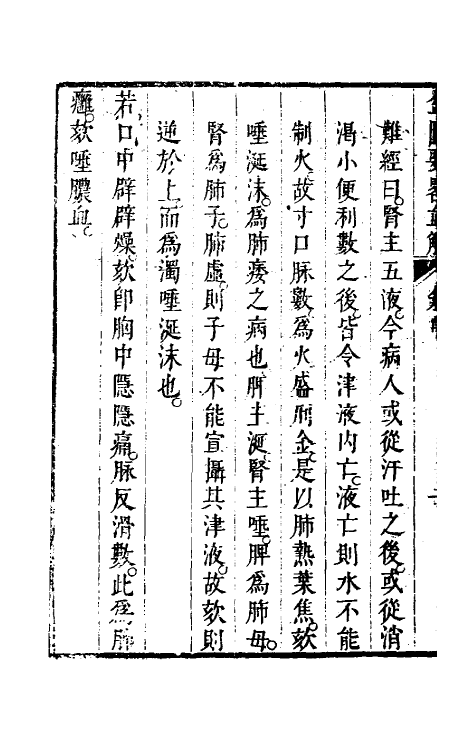 難經曰腎主五液今病人或從汗吐之後或從消
渴小便利數之後皆令津液内亡液亡則水不能
制火故寸口脉數爲火盛刑金是以肺熱葉焦欬
唾涎沫爲肺痿之病也脾主涎腎主唾脾爲肺母
腎爲肺子肺虛則子母不能宣攝其津液故欬則
逆於上而爲濁唾涎沫也
若口中辟辟燥欬卽胸中隱隱痛脉反滑數此爲肺
癰欬唾膿血